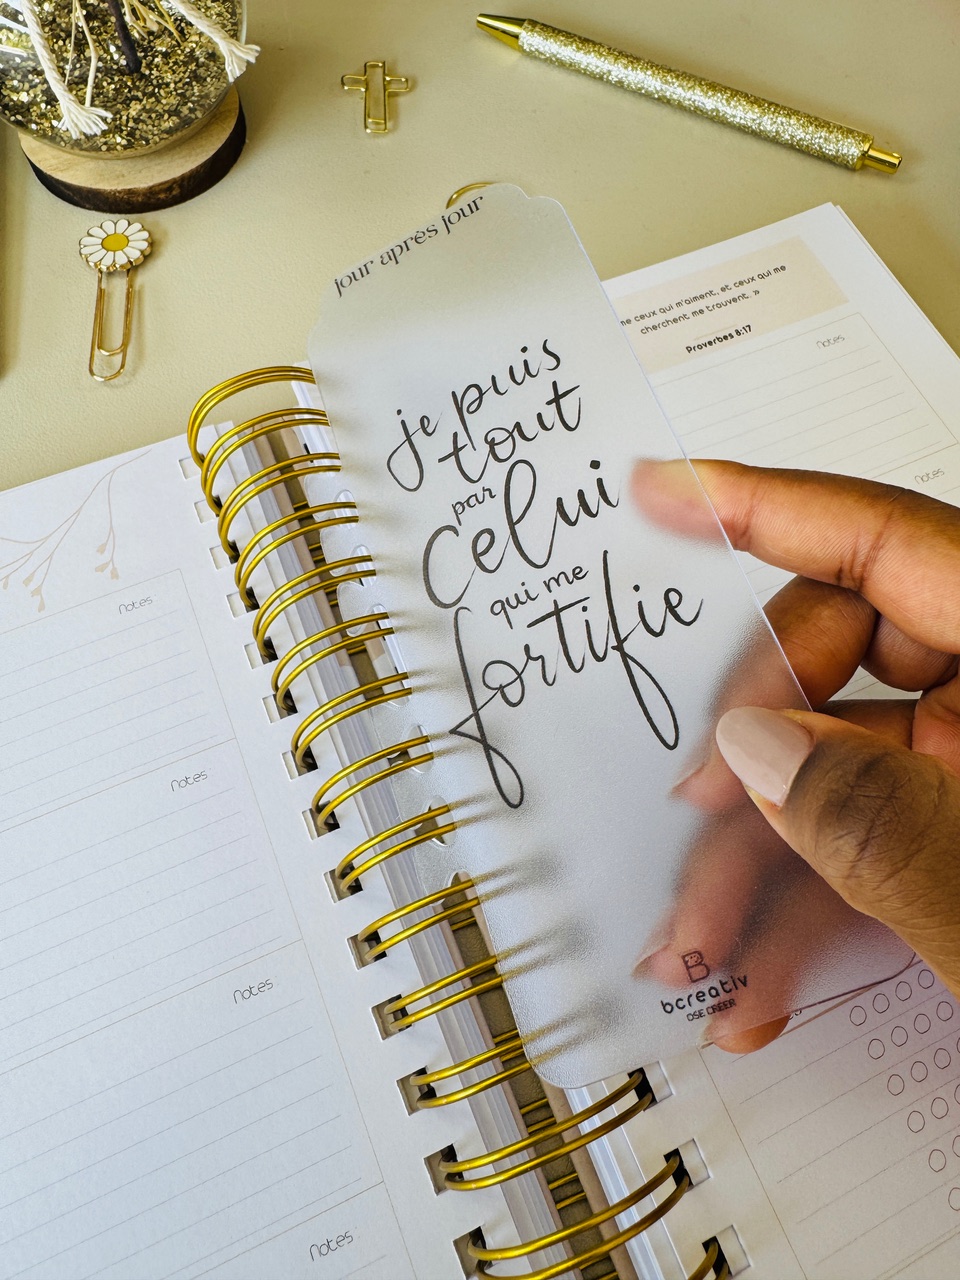 jour après jour
je puis
tout
par
Celui
qui me
fortifie
B
bcreativ
OSE CRÉER
me ceux qui m'aiment, et ceux qui me
cherchent me trouvent. »
Proverbes 8:17
notes
notes
notes
notes
notes
notes